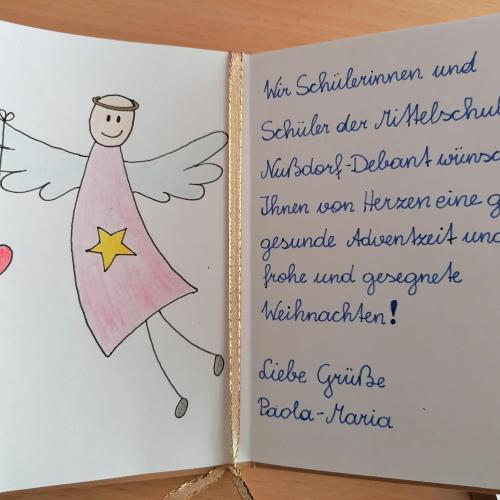 Wir Schülerinnen und
Schüler der Mittelschul
Nußdorf-Debant wünsc
Ihnen von Herzen eine g
gesunde Adventzeit und
frohe und gesegnete
Weihnachten!
Liebe Grüße
Paola-Maria